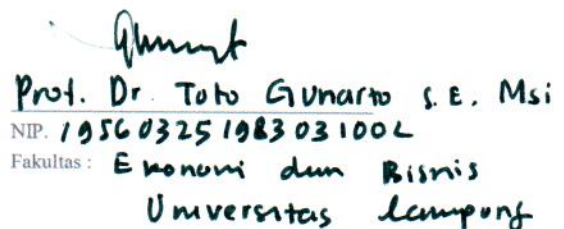 Prof. Dr. Toto Gunarto S.E. Msi
NIP. 19560325 1983 03 1002
Fakultas : Ekonomi dan Bisnis
Universitas Lampung